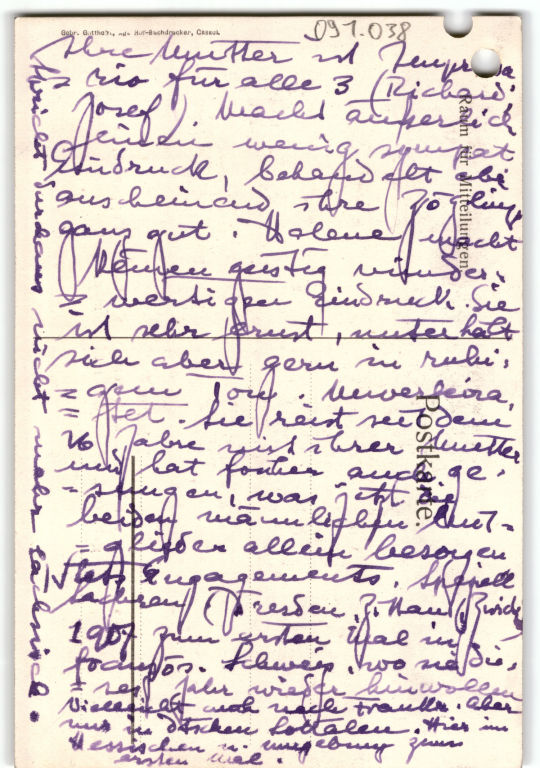 Gebr. Gotthelft, Kgl. Hof-Buchdrucker, Cassel.
091.038
Ihre Mutter ist Impresa-
= rio für alle 3 (Richard,
Josef). Macht äusserlich
wenig sympat
Eindruck, behandelt
anscheinend ihre Zöglinge
ganz gut. Helene macht
keinen geistig minder-
= wertigen Eindruck. Sie
ist sehr ernst, unterhält
sich aber gern in ruhi-
= gem Ton. Unverheira-
= tet. Sie reist seit dem
16 Jahre mit ihrer Mutter
und hat früher auch ge-
= sungen, was jetzt die
beiden männlichen Mit-
= glieder allein besorgen
Stets Engagements. Speziell
Sachsen (Dresden, Zittau, Zwick
1907 zum ersten Mal in
französ. Schweiz, wo sie die-
= ses Jahr wieder hinwollen
Vielleicht auch nach Frankr. Aber
nur in deutschen Lokalen. Hier im
Hessischen u. Umgebung zum
ersten Mal.
Spricht durchaus nicht mehr sächsisch.
Raum für Mitteilungen
Postkarte.